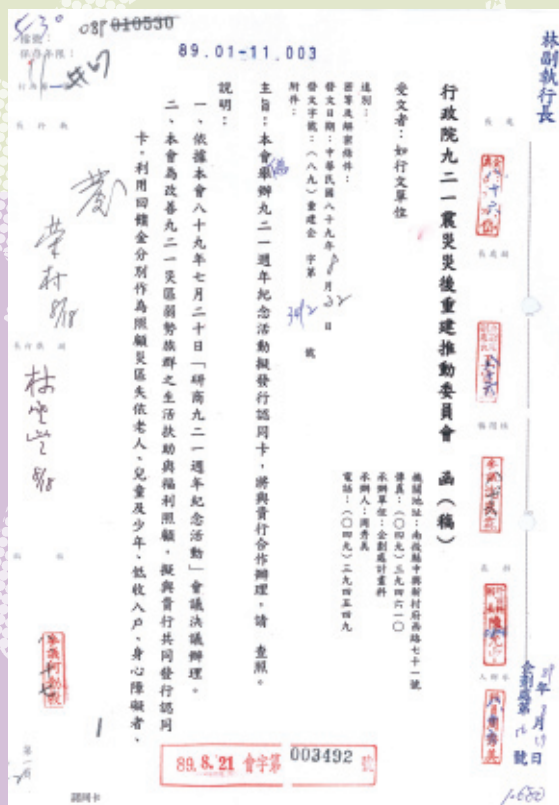 林副執行長
行政院九二一震災災後重建推動委員會　函（稿）
機關地址：南投縣中興新村府西路七十一號
傳真：（〇四九）三九四六一〇
承辦單位：企劃處計畫科
承辦人：周秀美
電話：（〇四九）三九四五四九
受文者：如行文單位
速別：
密等及解密條件：
發文日期：中華民國八十九年8月22日
發文字號：（八九）重建企 字第 3492 號
附件：
主旨：本會為舉辦九二一週年紀念活動擬發行認同卡，將與貴行合作辦理，請　查照。
說明：
一、依據本會八十九年七月二十日「研商九二一週年紀念活動」會議決議辦理。
二、本會為改善九二一災區弱勢族群之生活扶助與福利照顧，擬與貴行共同發行認同
卡，利用回饋金分別作為照顧災區失依老人、兒童及少年、低收入戶、身心障礙者、
010530
89.01-11.003
檔號：
保存年限：
榮村
8/18
8/18
89.8.21 會字第 003492 號
第一頁
認同卡
1